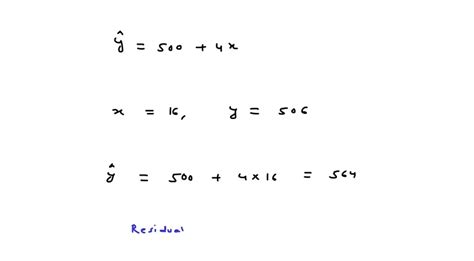 ŷ = 500 + 4x
x = 16, y = 506
ŷ = 500 + 4×16 = 564
Residual